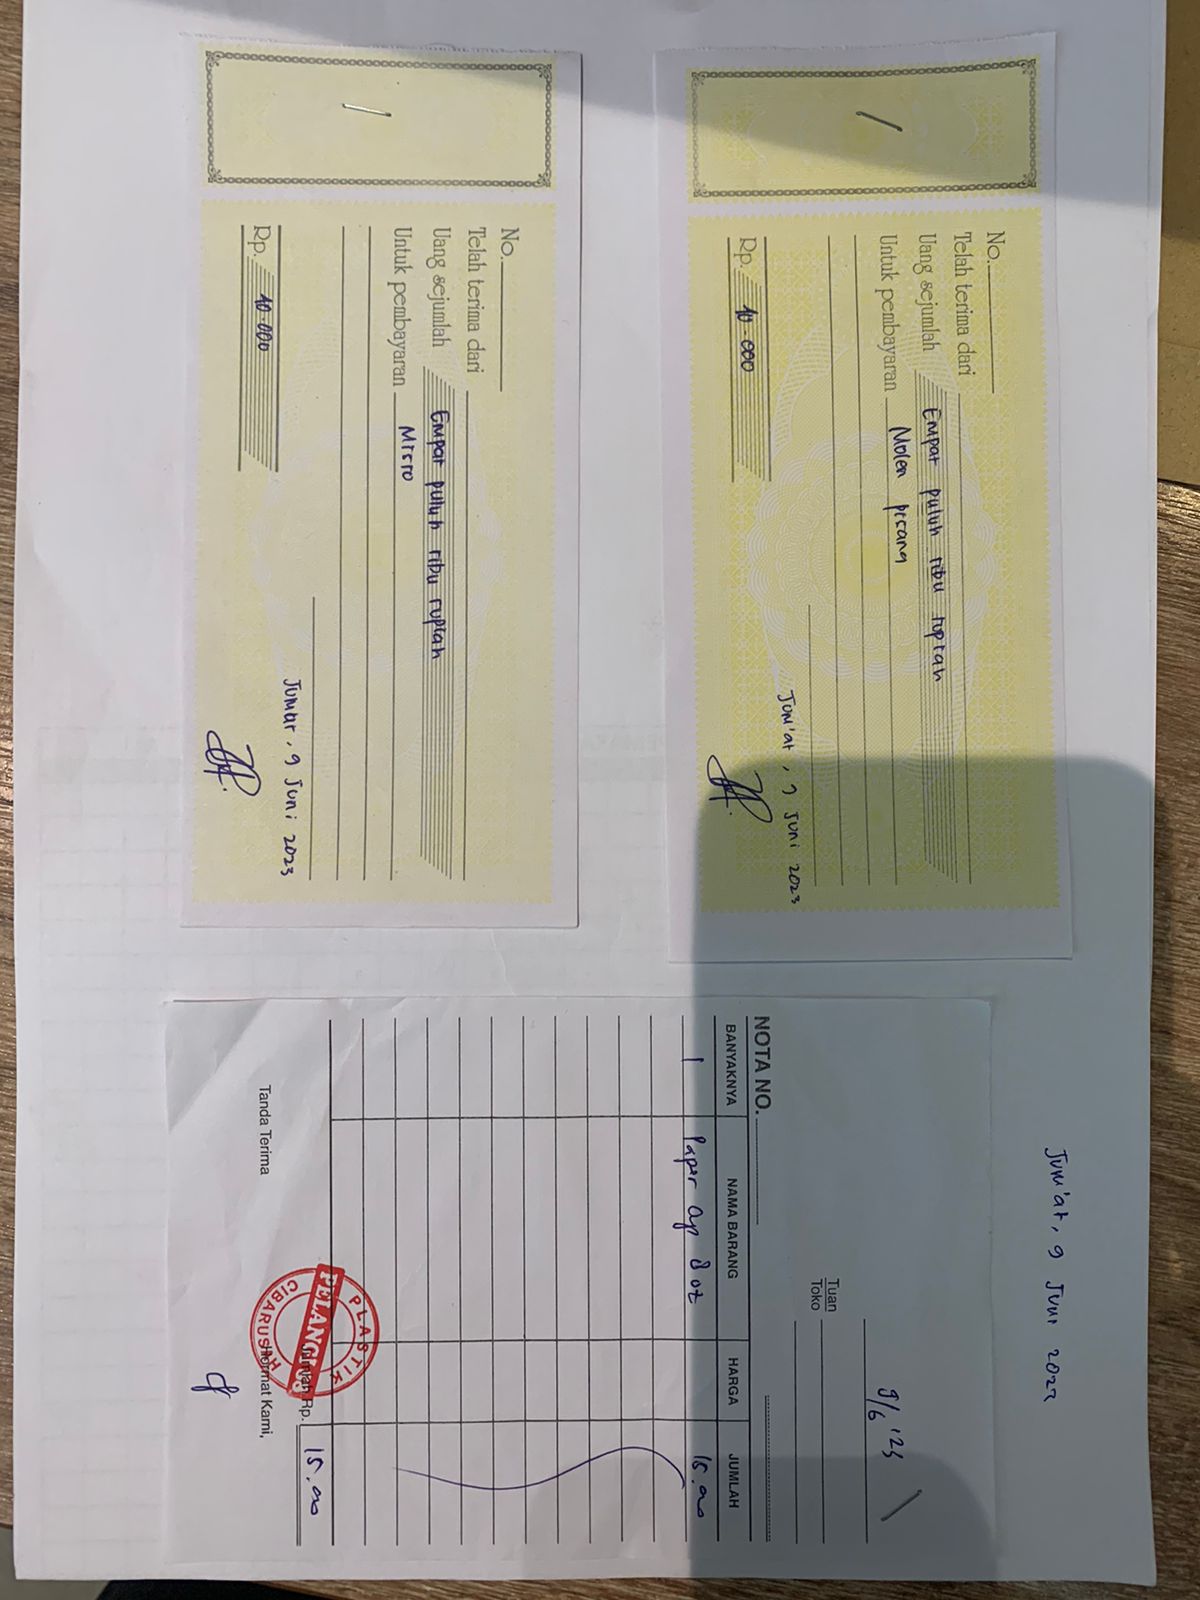 No.
Telah terima dari
Uang sejumlah Empat puluh ribu rupiah
Untuk pembayaran Molen pisang
Jum'at, 9 Juni 2023
Rp. 40.000
No.
Telah terima dari
Uang sejumlah Empat puluh ribu rupiah
Untuk pembayaran Misro
Jumat, 9 Juni 2023
Rp. 40.000
Jum'at, 9 Juni 2023
9/6 '23
Tuan
Toko
NOTA NO.
BANYAKNYA NAMA BARANG HARGA JUMLAH
1 Paper cup 8 oz 15.00
Jumlah Rp. 15.00
Tanda Terima Hormat Kami,
PLASTIK
PELANGI
CIBARUSAH